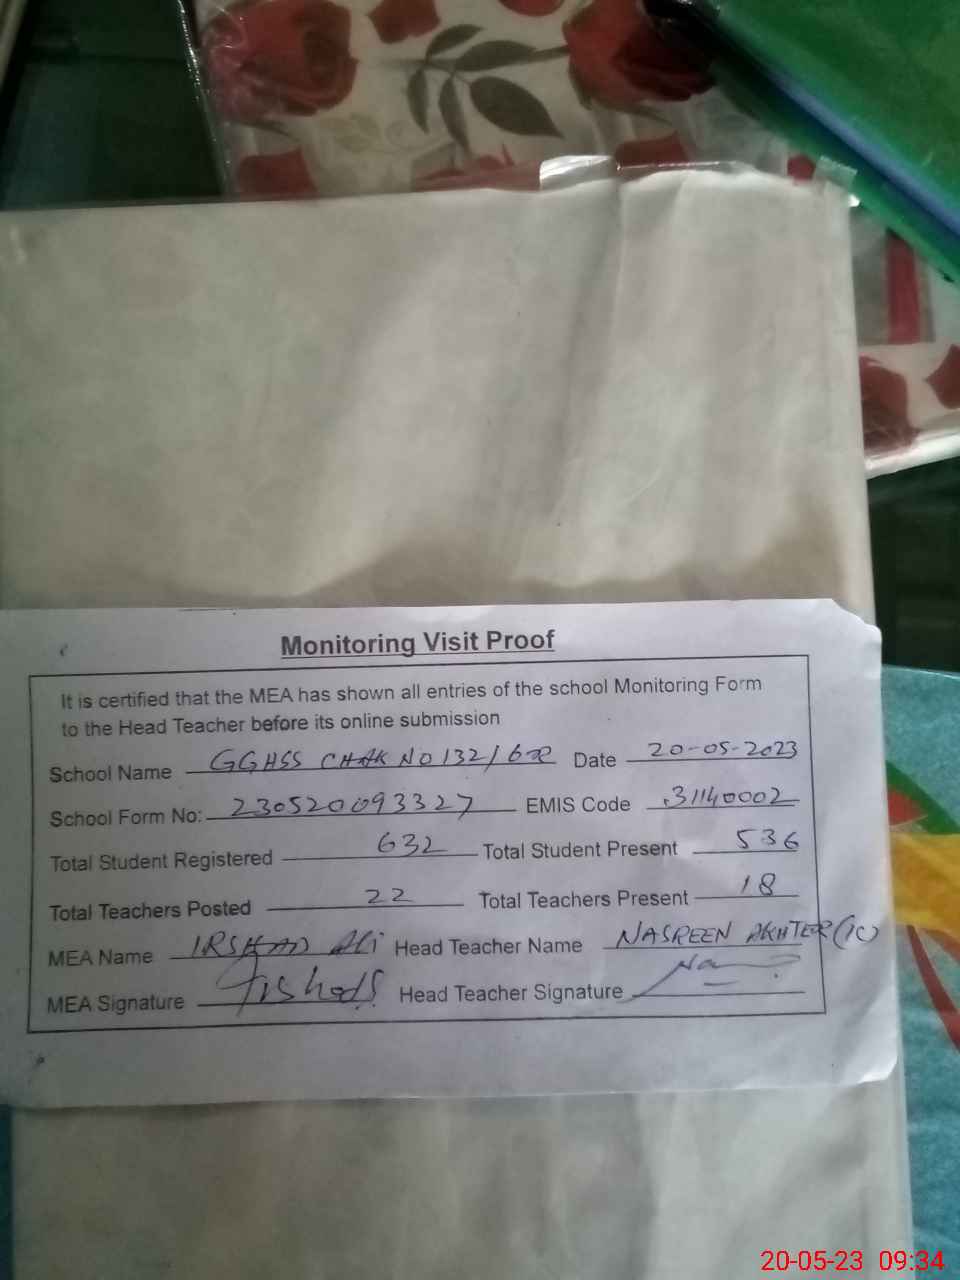 Monitoring Visit Proof
It is certified that the MEA has shown all entries of the school Monitoring Form
to the Head Teacher before its online submission
School Name GGHSS CHAK NO 132/6-R Date 20-05-2023
School Form No: 230520093327 EMIS Code 31140002
Total Student Registered 632 Total Student Present 536
Total Teachers Posted 22 Total Teachers Present 18
MEA Name IRSHAD Ali Head Teacher Name NASREEN AKHTER (IC)
MEA Signature Irshad Head Teacher Signature
20-05-23 09:34